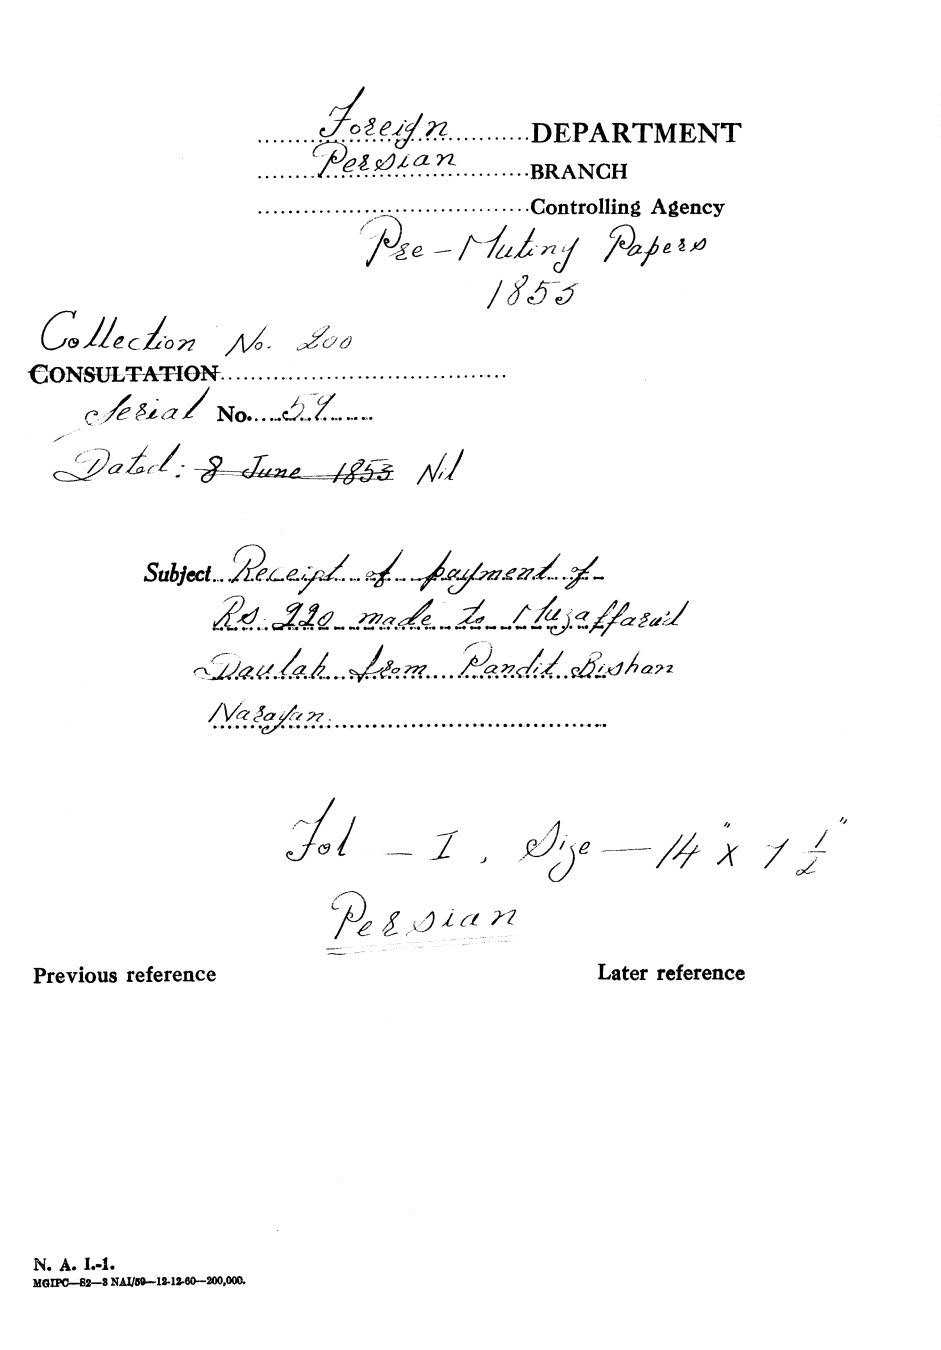 Foreign DEPARTMENT
Persian BRANCH
Controlling Agency
Pre-Mutiny Papers
1853
Collection No. 200
CONSULTATION
Serial No. 59
Dated: 8 June 1853 Nil
Subject Receipt of payment of
Rs. 220 made to Muzaffarud
Daulah from Pandit Bishan
Narayan.
Fol - I, Size - 14" x 7 1/2"
Persian
Previous reference Later reference
N. A. I.-1.
MGIPC—S2—3 NAI/59—12-12-60—200,000.